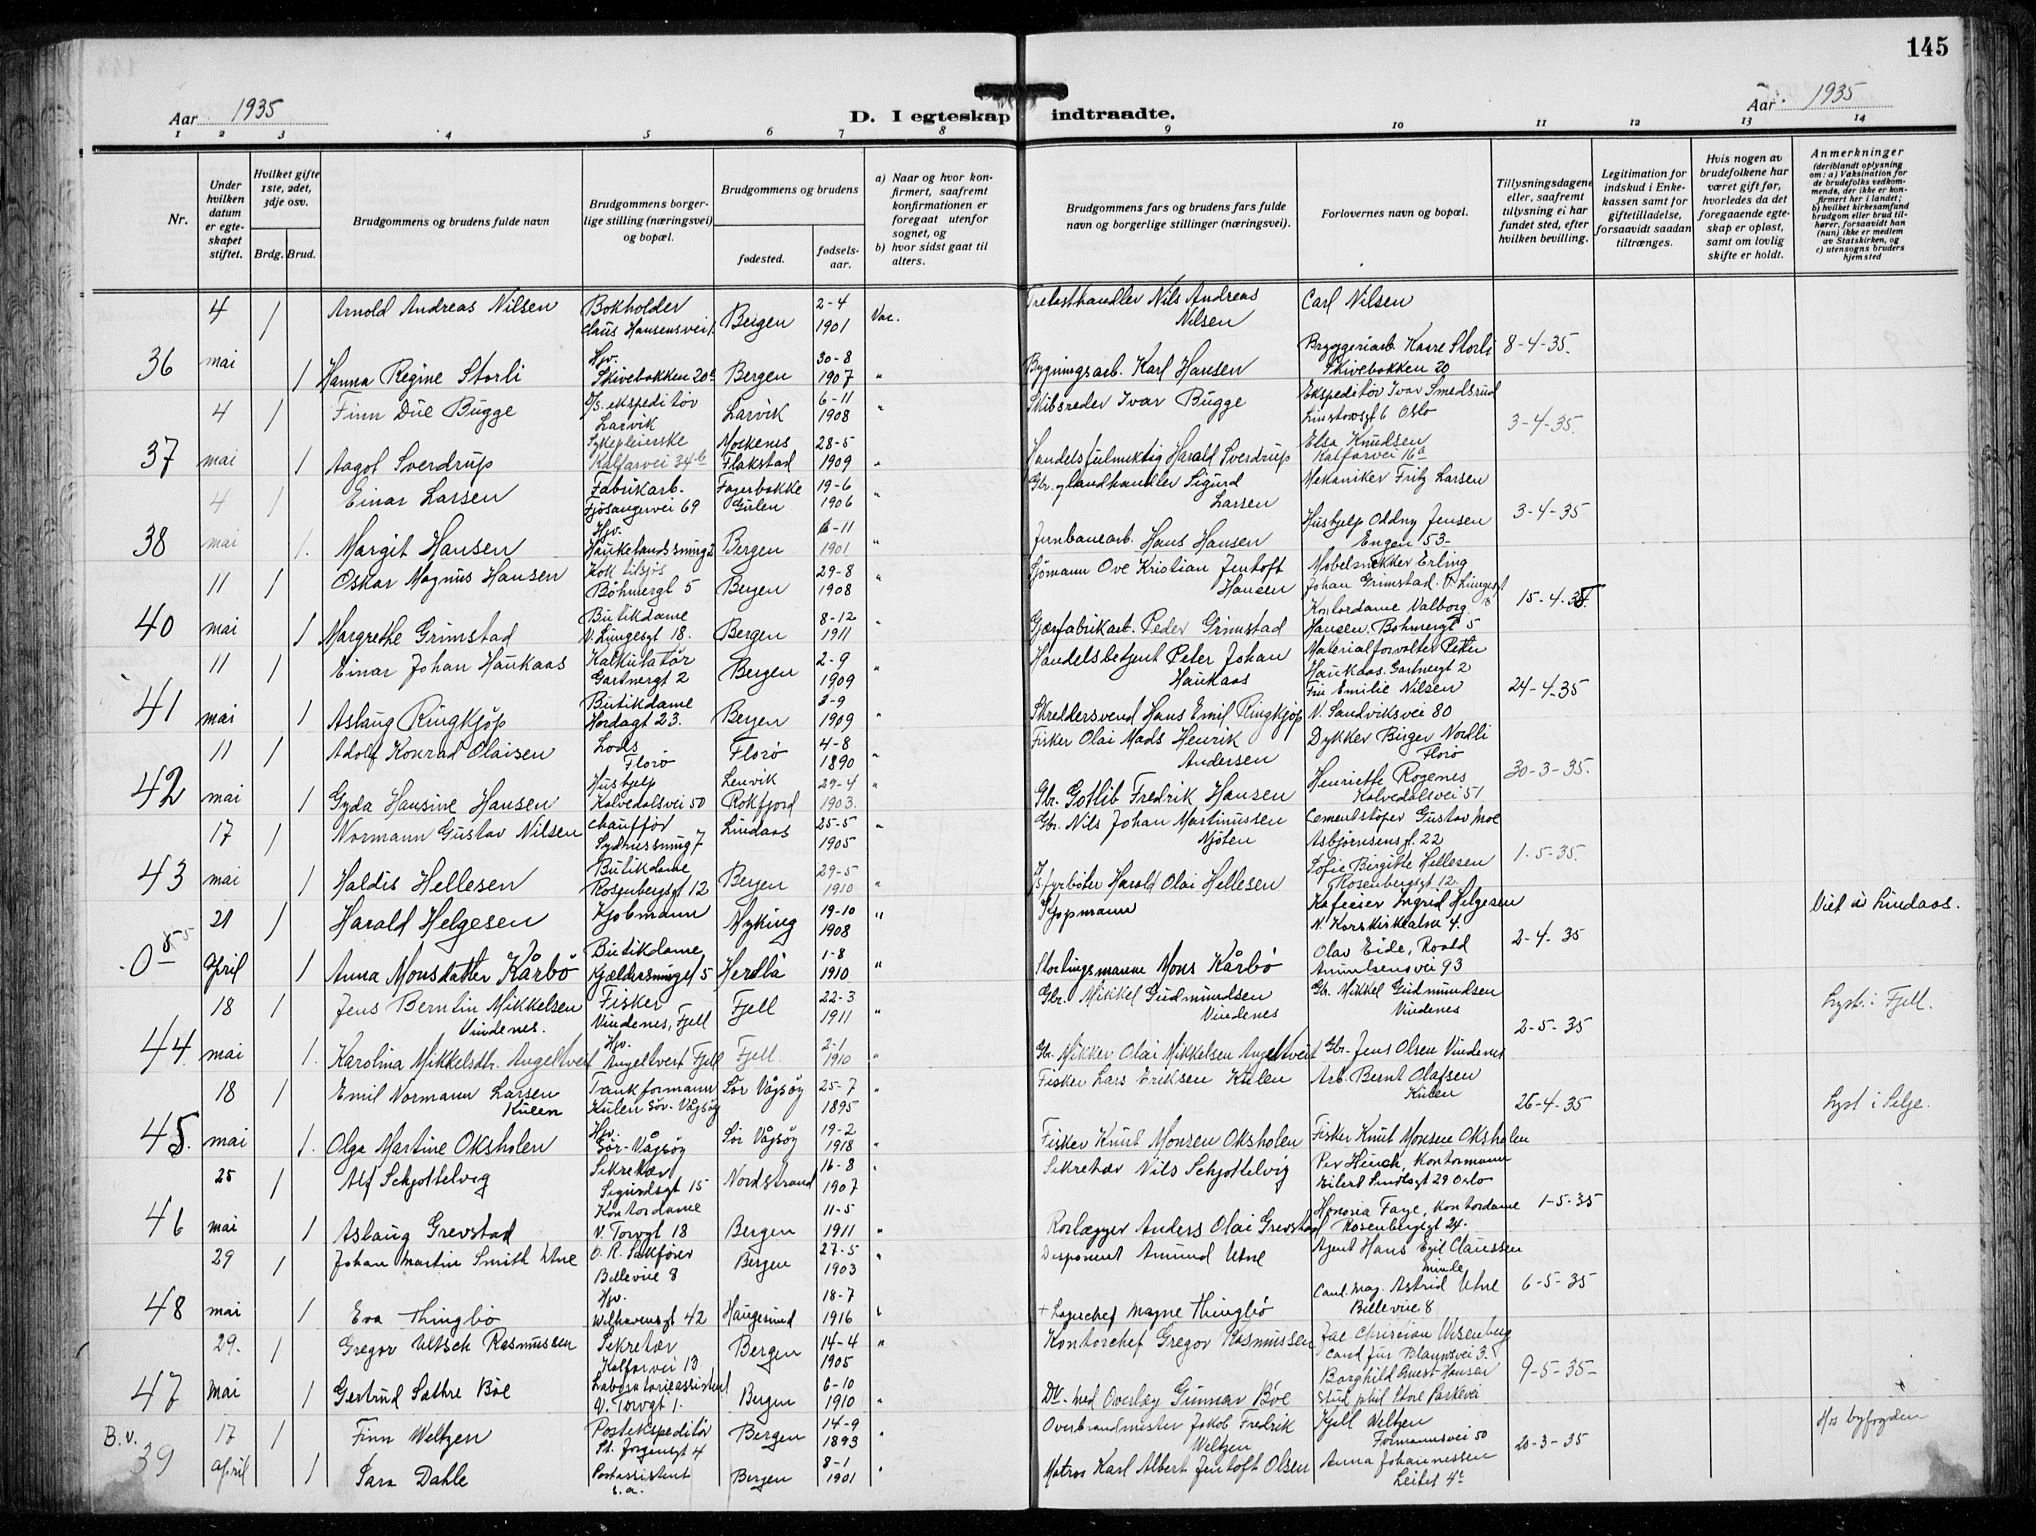 145
Aar 1935
D. I egteskap indtraadte.
Aar 1935
1 2 3 4 5 6 7 8 9 10 11 12 13 14
Nr.
Under hvilken datum er egteskapet stiftet.
Hvilket gifte 1ste, 2det, 3dje osv.
Brdg. Brud.
Brudgommens og brudens fulde navn
Brudgommens borgerlige stilling (næringsvei) og bopæl.
Brudgommens og brudens
fødested.
fødselsaar.
a) Naar og hvor konfirmert, saafremt konfirmationen er foregaat utenfor sognet, og
b) hvor sidst gaat til alters.
Brudgommens fars og brudens fars fulde navn og borgerlige stillinger (næringsvei).
Forlovernes navn og bopæl.
Tillysningsdagene eller, saafremt tillysning ei har fundet sted, efter hvilken bevilling.
Legitimation for indskud i Enkekassen samt for giftetilladelse, forsaavidt saadan tiltrænges.
Hvis nogen av brudefolkene har været gift før, hvorledes da det foregaaende egteskap er opløst, samt om lovlig skifte er holdt.
Anmerkninger (deriblandt oplysning om: a) Vaksination for de brudefolks vedkommende, der ikke er konfirmert her i landet; b) hvilket kirkesamfund brudgom eller brud tilhører, forsaavidt han (hun) ikke er medlem av Statskirken, og c) utensogns bruders hjemsted
36 4 mai 1 Arnold Andreas Nilsen Bokholder Claus Hansensvei Bergen 2-4 1901 Vac. Trelasthandler Nils Andreas Nilsen Carl Nilsen
1 Hanna Regine Storli Hjv. Skivebakken 20 Bergen 30-8 1907 " Bygningsarb. Karl Hansen Bryggeriarb. Kaare Storli Skivebakken 20 8-4-35.
37 4 mai 1 Finn Düe Bugge D/S. ekspeditør Larvik Larvik 6-11 1908 " Skibsreder Ivar Bugge Ekspeditør Ivar Smedsrud Linstowsgt 6 Oslo
1 Aagot Sverdrup Sykepleierske Kalfarvei 34b Moskenes Flakstad 28-5 1909 " Handelsfulmektig Harald Sverdrup Elsa Knudsen Kalfarvei 16a 3-4-35.
38 4 mai 1 Einar Larsen Fabrikarb. Fjösangervei 69 Fagerbakke Gulen 19-6 1906 " Gbr. og landhandler Sigurd Larsen Mekaniker Fritz Larsen
1. Margit Hansen Hjv. Haukelandssmug Bergen 6-11 1901 " Jernbanearb. Hans Hansen Hushjelp Oddny Jensen Engen 53- 3-4-35
40 11 mai 1 Oskar Magnus Hansen Kok tilsjøs Böhmergt 5 Bergen 29-8 1908 " Sjömann Ove Kristian Jentoft Hansen Møbelsnekker Erling Johan Grimstad. V. Lingesgt 18
1 Margrethe Grimstad Butikdame V. Lingesgt 18. Bergen 8-12 1911 " Gjærfabrikarb. Peder Grimstad Kontordame Valborg Hansen. Bohmergt 5 15-4-35.
41 11 mai 1 Einar Johan Haukaas Kalkulatør Gartnergt 2 Bergen 2-9 1909 " Handelsbetjent Peter Johan Haukaas Materialforvalter Peter Haukaas. Gartnergt 2
1 Aslaug Ringkjøp Butikdame Hordagt 23. Bergen 2-9 1909 " Skreddersvend Hans Emil Ringkjöp Fru Emilie Nilsen N. Sandviksvei 80 24-4-35
42 11 mai 1 Adolf Konrad Olaisen Lods Florø Florø 4-8 1890 " Fisker Olai Mads Henrik Andersen Dykker Birger Nordli Florø
1 Gyda Hansine Hansen Hushjelp Kalvedalsvei 50 Lenvik Rokfjord 29-4 1903. " Gbr. Gotlib Fredrik Hansen Henriette Rogenes Kalvedalsvei 51 30-3-35.
43 17 mai 1 Normann Gustav Nilsen chauffør Sydnessmug 7 Lindaas 25-5 1905 " Gbr. Nils Johan Martinussen Njøten Cementstøper Gustav Moe Asbjørnsensgt. 22
1 Haldis Hellesen Butikdame Rosenbergsgt 12 Bergen 29-5 1910 " Fyrbøter Harald Olai Hellesen Sofie Birgitte Hellesen Rosenbergsgt 12. 1-5-35.
21 April 1 Harald Helgesen Kjøbmann Myking 19-10 1908 " Kjøpmann Kafeeier Ingrid Helgesen N. Korskirkealm 4. Viet i Lindaas.
1 Anna Monsdatter Kårbö Butikdame Kjellersmuget 5 Herdla 1-8 1910 " Stortingsmann Mons Kårbö Olav Eide, Roald Amundsensvei 93 2-4-35
44 18 mai 1 Jens Berntin Mikkelsen Vindenes. Fisker Vindenes, Fjell Fjell 22-3 1911 " Gbr. Mikkel Gudmundsen Vindenes Gbr. Mikkel Gudmundsen Vindenes Lyst. i Fjell.
1. Karolina Mikkelsdtr. Angeltveit Hjv. Angeltveit Fjell Fjell. 2-1 1910 " Gbr. Mikkel Olai Mikkelsen Angeltveit Gbr. Jens Olsen Vindenes 2-5-35
45. 18 mai 1 Emil Normann Larsen Kulen Tankformann Kulen Sör-Vågsöy Sör Vågsöy 25-7 1895 " Fisker Lars Eriksen Kulen Arb. Bernt Olafsen Kulen Lyst i Selje.
1. Olga Martine Oksholen Hjv. Sör-Vågsöy Sör Vågsöy 19-2 1918 " Fisker Knut Monsen Oksholen Fisker Knut Monsen Oksholen 26-4-35
46 25 mai 1 Alf Schjottelvig Sekretær Sigurdsgt 15 Nordstrand 16-8 1907 " Sekretær Nils Schjottelvig Per Hinch, Kontormann Eilert Sundtsgt 29 Oslo
1 Aslaug Grevstad Kontordame V. Torvgt 18 Bergen 11-5 1911 " Rørlægger Anders Olai Grevstad Honoria Faye, Kontordame Rosenbergsgt 24. 1-5-35
48 29 mai 1 Johan Martin Smith Utne O. R. Sakfører Bellevue 8 Bergen 27-5 1903 " Disponent Amund Utne Agent Hans Egil Claussen Minde
1 Eva Thingbø Hjv. Welhavensgt 42 Haugesund 18-7 1916 " + Lagerchef Magne Thingbø Cand. mag. Astrid Utne Bellevue 8 6-5-35
47 29. Mai 1 Gregor Ultsch Rasmussen Sekretær Kalfarvei 13 Bergen 14-4 1905 " Kontorchef Gregor Rasmussen Jac Christian Wesenberg cand jur Blaauwsvei 3.
1 Gertrud Sathre Böe Laboratorieassistent V. Torvgt 1. Bergen 6-10 1910 " Dr. med Overlæg Gunnar Böe Borghild Hansen stud. phil Store Parkvei 9-5-35-
B.v. 39 17 April 1 Finn Weltzen Postekspeditör St. Jørgensgt 4 Bergen 14-9 1893 " Overbrandmester Jakob Fredrik Weltzen Kjell Weltzen Formannsvei 50 Hos byfogden
1 Sara Dahle Postassistent s.a. Bergen 8-1 1901 " Matros Karl Albert Jentoft Olsen Anna Johannessen Leitet 4 20-3-35